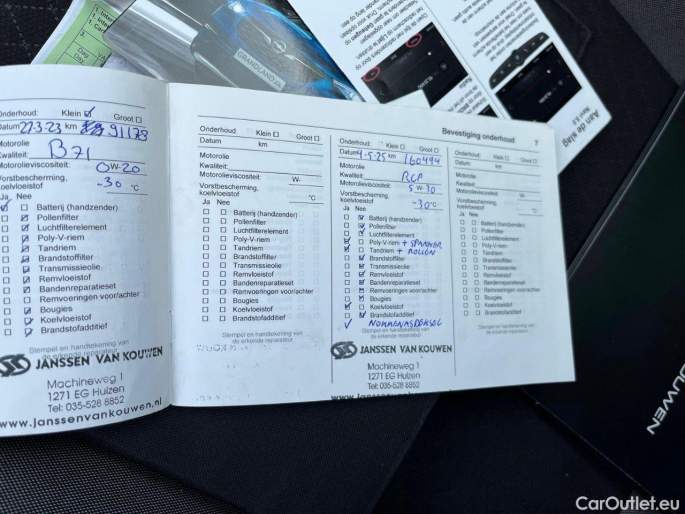 GRANDLAND X
Aan de slag
Onderhoud: Klein ☑ Groot ☐
Datum 22-3-23 km 91178
Motorolie
Kwaliteit: B71
Motorolieviscositeit: 0W-20
Vorstbescherming,
koelvloeistof -30 °C
Ja Nee
Batterij (handzender)
Pollenfilter
Luchtfilterelement
Poly-V-riem
Tandriem
Brandstoffilter
Transmissieolie
Remvloeistof
Bandenreparatieset
Remvoeringen voor/achter
Bougies
Koelvloeistof
Brandstofadditief
Stempel en handtekening van
de erkende reparateur
JANSSEN VAN KOUWEN
Machineweg 1
1271 EG Huizen
Tel: 035-528 8852
www.janssenvankouwen.nl
Onderhoud: Klein ☐ Groot ☐
Datum km
Motorolie
Kwaliteit:
Motorolieviscositeit: W-
Vorstbescherming,
koelvloeistof °C
Ja Nee
Batterij (handzender)
Pollenfilter
Luchtfilterelement
Poly-V-riem
Tandriem
Brandstoffilter
Transmissieolie
Remvloeistof
Bandenreparatieset
Remvoeringen voor/achter
Bougies
Koelvloeistof
Brandstofadditief
Stempel en handtekening van
de erkende reparateur
Bevestiging onderhoud 7
Onderhoud: Klein ☐ Groot ☐
Datum 4-5-25 km 160494
Motorolie
Kwaliteit:
Motorolieviscositeit: 5W-30
Vorstbescherming,
koelvloeistof -30°C
Ja Nee
Batterij (handzender)
Pollenfilter
Luchtfilterelement
Poly-V-riem + SPANNER
Tandriem + ROLLEN
Brandstoffilter
Transmissieolie
Remvloeistof
Bandenreparatieset
Remvoeringen voor/achter
Bougies
Koelvloeistof
Brandstofadditief
Stempel en handtekening van
de erkende reparateur
JANSSEN VAN KOUWEN
Machineweg 1
1271 EG Huizen
Tel: 035-528 8852
www.janssenvankouwen.nl
Onderhoud: Klein ☐ Groot ☐
Datum km
Motorolie
Kwaliteit:
Motorolieviscositeit: W-
Vorstbescherming,
koelvloeistof °C
Ja Nee
Batterij (handzender)
Pollenfilter
Luchtfilterelement
Poly-V-riem
Tandriem
Brandstoffilter
Transmissieolie
Remvloeistof
Bandenreparatieset
Remvoeringen voor/achter
Bougies
Koelvloeistof
Brandstofadditief
Stempel en handtekening van
de erkende reparateur
OUWEN
CarOutlet.eu